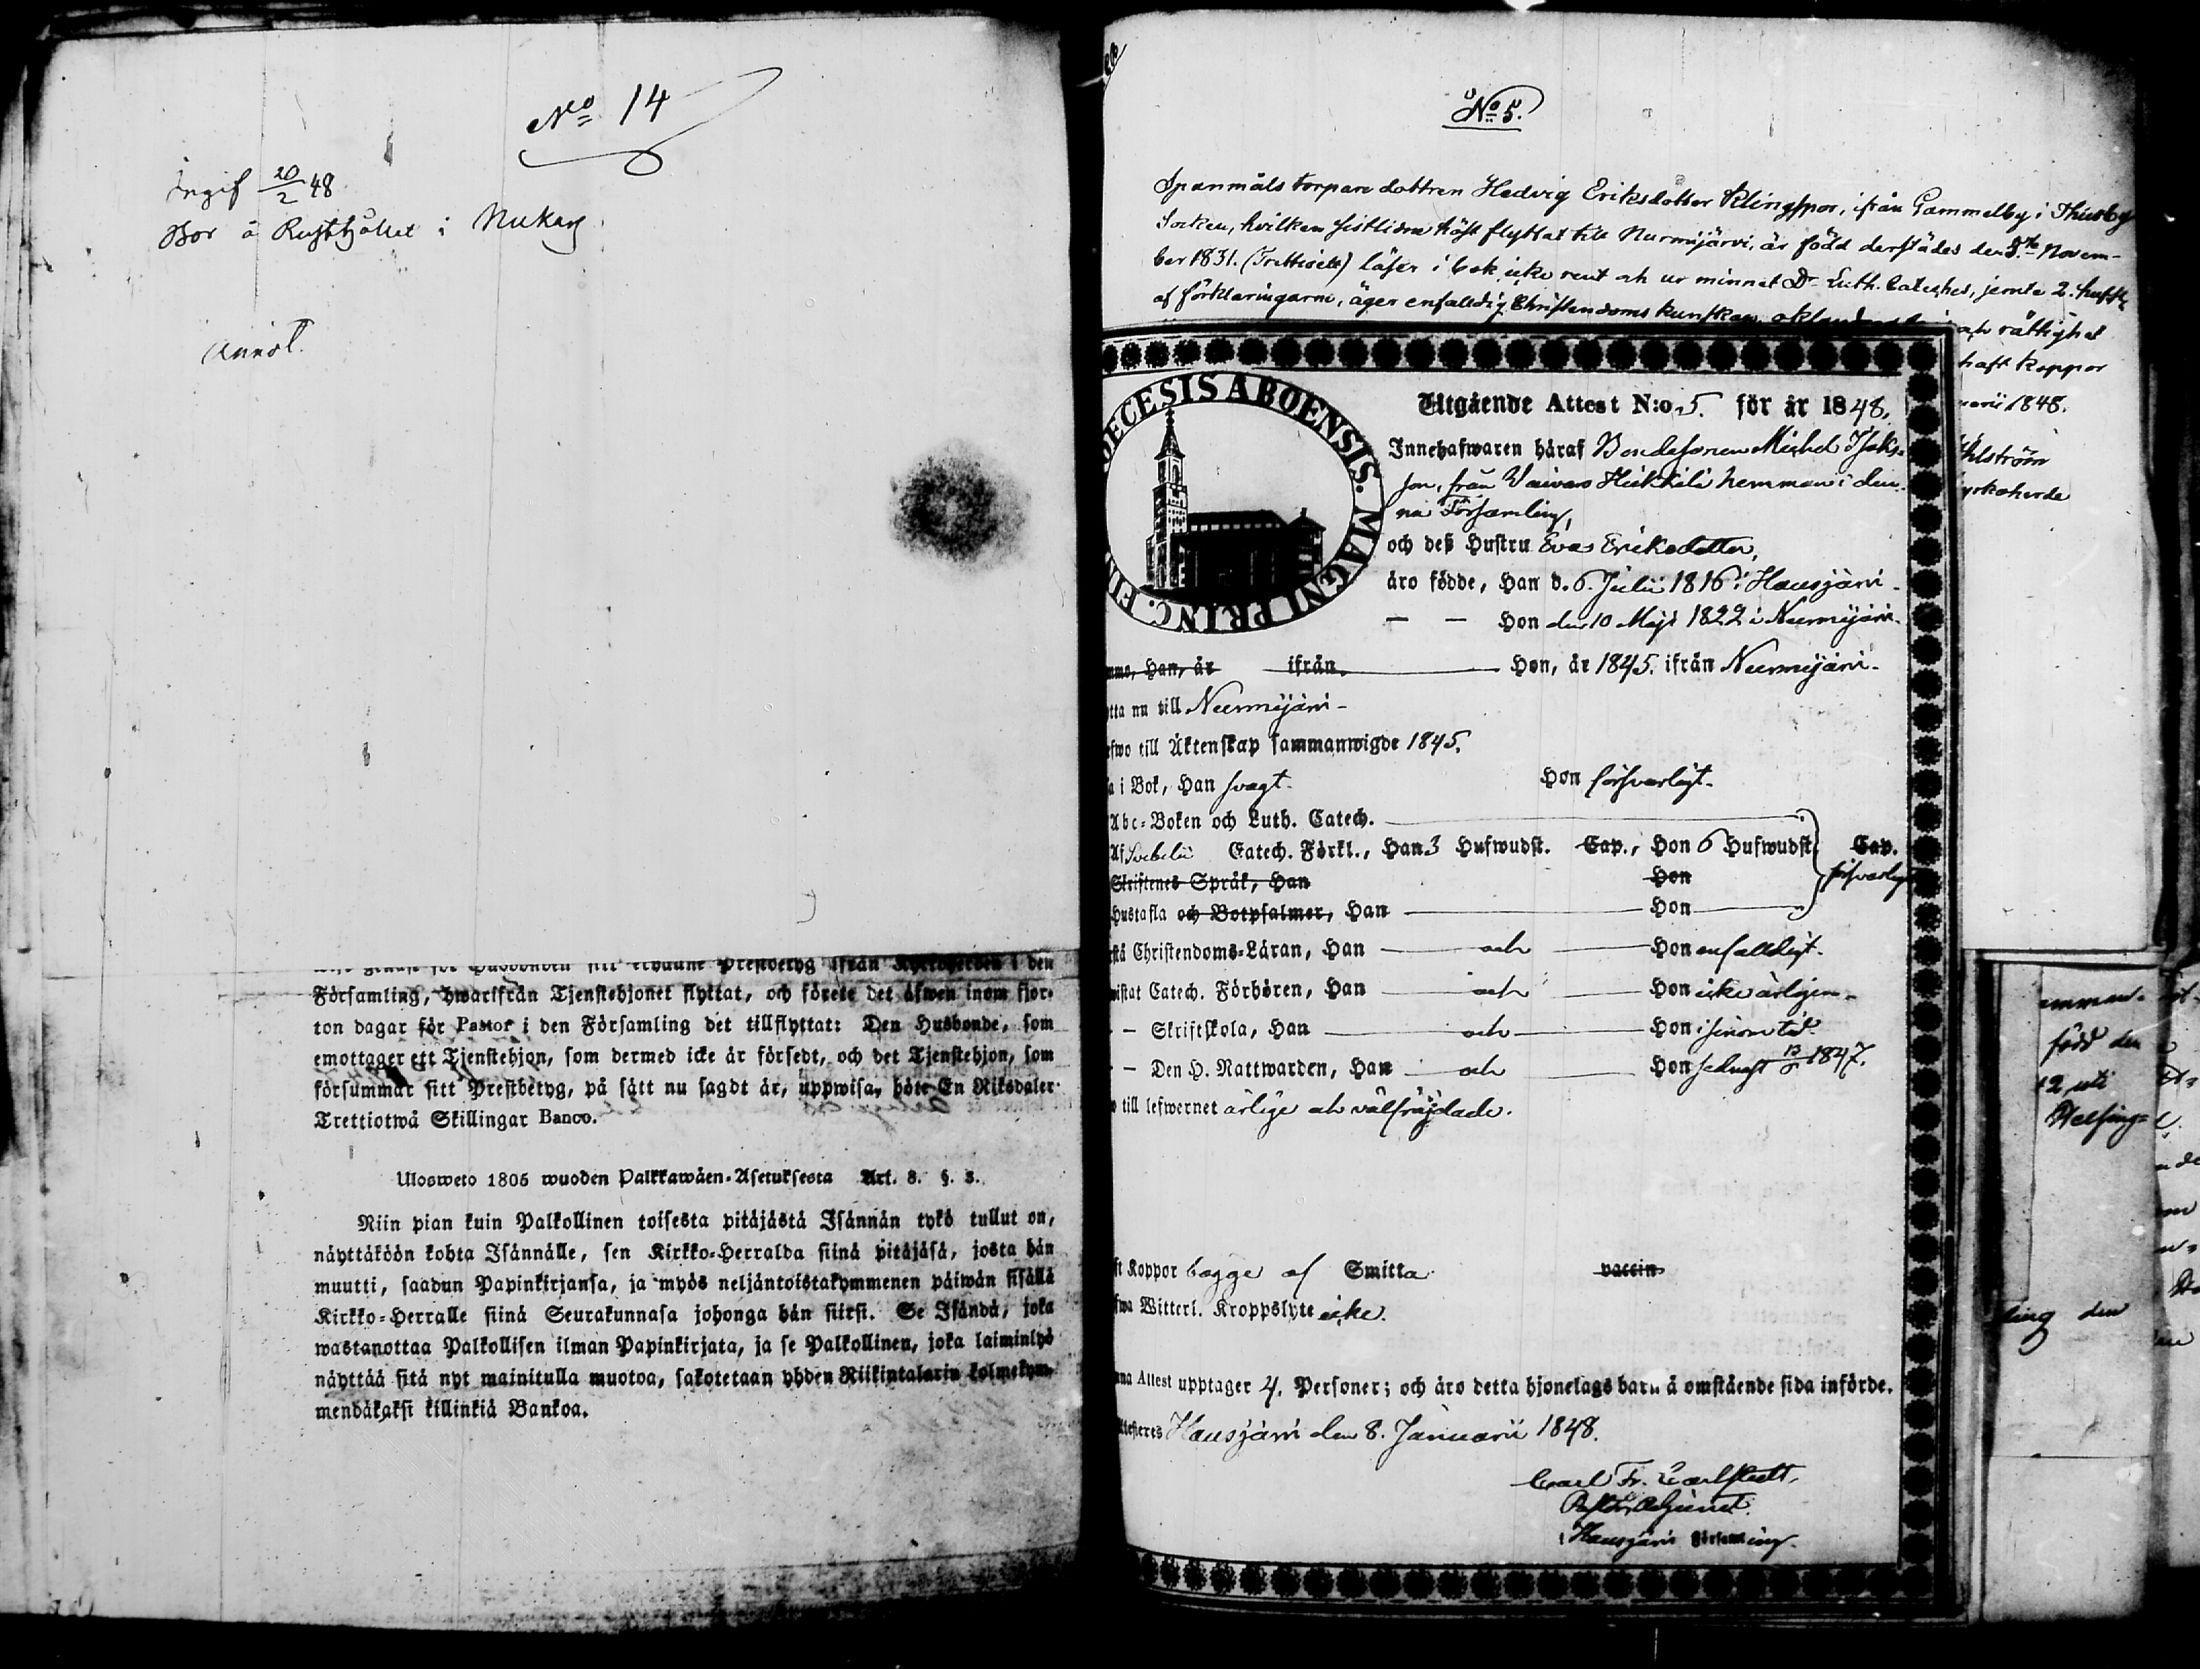 No 14
Ingif 20/2 48
Bor å Rusthållet i Nukari
Annot.
Församling, hwarifrån Tjenstehjonet flyttat, och förete det äfwen inom fjor-
ton dagar för Pastor i den Församling det tillflyttat: Den Husbonde, som
emottager ett Tjenstehjon, som dermed icke är försedt, och det Tjenstehjon, som
försummar sitt Prestbetyg, på sätt nu sagdt är, uppwisa, böte En Riksdaler
Trettiotwå Skillingar Banco.
Ulosweto 1805 wuoden Palkkawäen-Asetuksesta Art. 8. §. 3.
Niin pian kuin Palkollinen toisesta pitäjästä Isännän tykö tullut on,
näyttäköön kohta Isännälle, sen Kirkko-Herralda siinä pitäjäsä, josta hän
muutti, saadun Papinkirjansa, ja myös neljäntoistakymmenen päiwän sisällä
Kirkko-Herralle siinä Seurakunnasa johonga hän siirsi. Se Isändä, joka
wastanottaa Palkollisen ilman Papinkirjata, ja se Palkollinen, joka laiminlyö
näyttää sitä nyt mainitulla muotoa, sakotetaan yhden Riikintalarin kolmekym-
mendäkaksi killinkiä Bankoa.
No 5.
Spanmåls torpare dottren Hedvig Eriksdotter Klingspor, ifrån Gammelby i Thusby
Socken, hvilken sistlidne höst flyttat till Nurmijärvi, är född derstädes den 5te Novem-
ber 1831. (Trettioett) läser i bok icke rent och ur minnet Dr Luth. Cateches, jemte 2. hufst.
af förklaringarne, äger enfaldig Christendoms kunskap,
och rättighet
haft koppor
1848.
DECESIS ABOENSIS. MAGNI PRINC. FIN
Utgående Attest N:o 5. för år 1848.
Innehafwaren häraf Bondesonen Michel Isaks-
son, från Waiwars Heikkilä hemman i den-
na Församling,
och deß Hustru Eva Eriksdotter,
äro födde, Han d. 6. Julii 1816 i Hausjärvi -
— — Hon den 10 Maji 1822 i Nurmijärvi.
Han, år ifrån Hon, år 1845. ifrån Nurmijärvi -
tta nu till Nurmijärvi -
efwo till Äktenskap sammanwigde 1845.
a i Bok, Han svagt. Hon försvarligt.
Abc-Boken och Luth. Catech.
Af Svebelii Catech. Förkl., Han 3 Hufwudst. Cap., Hon 6 Hufwudst. Cap.
Skriftenes Språk, Han Hon försvarligt
Hustafla och Botpsalmer, Han Hon
stå Christendoms-Läran, Han och Hon enfalldigt.
wistat Catech. Förhören, Han och Hon icke årligen -
- — Skriftskola, Han och Hon i sinom tid
- — Den H. Nattwarden, Han och Hon sednast 1847.
till lefwernet ärlige och välfräjdade.
ft Koppor bägge af Smitta vaccin
fwa Witterl. Kroppslyte icke.
nna Attest upptager 4. Personer; och äro detta hjonelags barn å omstående sida införde.
Attesteres Hausjärvi den 8. Januarii 1848.
Carl Fr. Carlstedt,
Pastors Adjunct
i Hausjärvi Församling.
född den
ling den